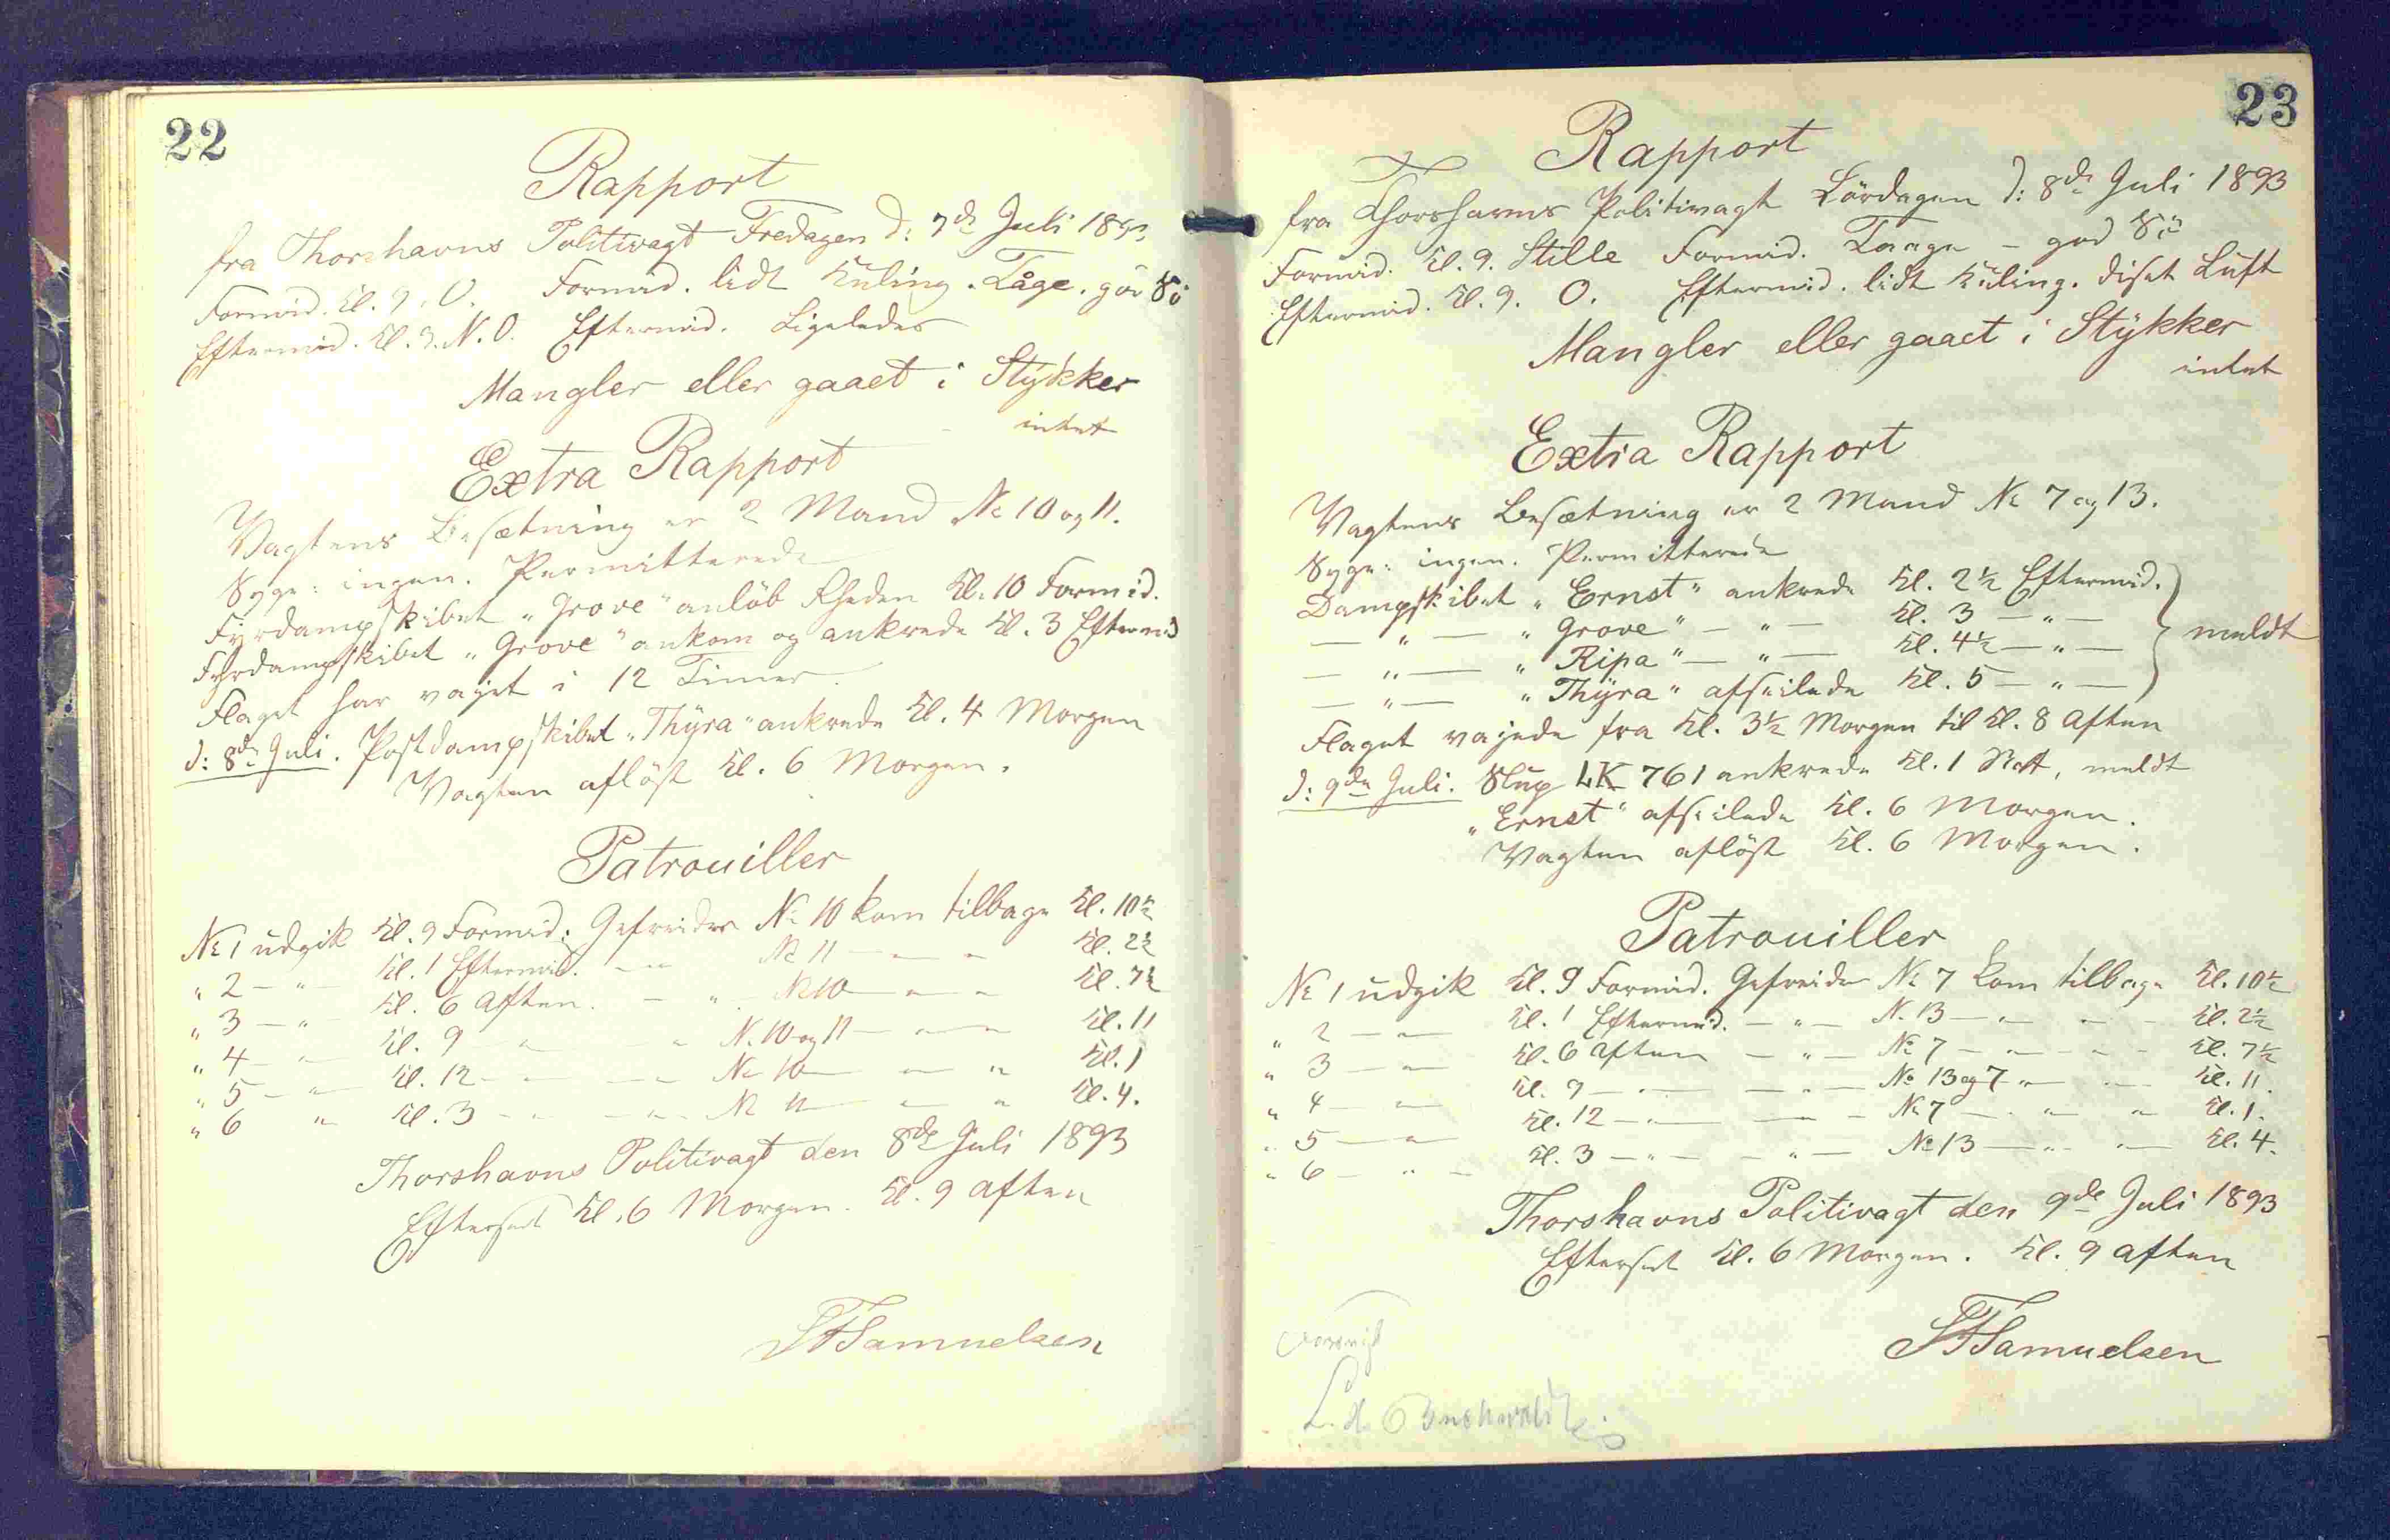 22
Rapport
fra Thorshavns Politivagt Fredagen d: 7de Juli 1893
Formid. Kl. 9. O. Formid. lidt Kuling. Tåge. god Sö
Eftermid. Kl. 3. N.O. Eftermid. Ligeledes
Mangler eller gaaet i Stÿkker
intet
Extra Rapport
Vagtens Besætning er 2 Mand No 10 og 11.
Syge: ingen. Permitterede
Fÿrdampskibet „Grove" anlöb Rheden Kl. 10 Formid.
Fÿrdampskibet „Grove" ankom og ankrede Kl. 3 Eftermid
Flaget har vajet i 12 Timer.
d: 8de Juli. Postdampskibet „Thÿra" ankrede Kl. 4 Morgen
Vagten aflöst Kl. 6 Morgen.
Patrouiller
No 1 udgik Kl. 9 Formid: Gefreider No 10 kom tilbage Kl. 10½
„ 2 — „ — Kl. 1 Eftermid. — „ No 11 — „ — „ Kl. 2½
„ 3 — „ Kl. 6 Aften. — „ — No 10 — „ — „ Kl. 7½
„ 4 — „ — Kl. 9 — „ — „ No. 10 og 11 — „ — „ Kl. 11
„ 5 — „ — Kl. 12 — „ — „ No 10 — „ — „ Kl. 1
„ 6 „ Kl. 3 — „ — „ — No 11 — „ — „ Kl. 4.
Thorshavns Politivagt den 8de Juli 1893
Efterset Kl. 6 Morgen. Kl. 9 Aften
Samuelsen
23
Rapport
fra Thorshavns Politivagt Lördagen d: 8de Juli 1893
Formid. Kl. 9. Stille Formid. Taage – god Sö
Eftermid. Kl. 9. O. Eftermid. lidt Kuling. diset Luft
Mangler eller gaaet i Stÿkker
intet
Extra Rapport
Vagtens Besætning er 2 Mand No 7 og 13.
Syge: ingen. Permitterede
Dampskibet „Ernst" ankrede Kl. 2½ Eftermid.
— „ — „Grove" — „ — Kl. 3 — „ —
— „ — „Ripa" — „ — Kl. 4½ — „ — meldt
— „ — „Thÿra" afseilede Kl. 5 — „ —
Flaget vajede fra Kl. 3½ Morgen til Kl. 8 Aften
d: 9de Juli. Slup LK 761 ankrede Kl. 1 Nat, meldt
„Ernst" afseilede Kl. 6 Morgen.
Vagten aflöst Kl. 6 Morgen.
Patrouiller
No 1 udgik Kl. 9 Formid. Gefreider No 7 kom tilbage Kl. 10½
„ 2 — „ — Kl. 1 Eftermid. — „ — No. 13 — „ — „ — Kl. 2½
„ 3 — „ — Kl. 6 Aften — „ — No 7 — „ — „ — Kl. 7½
„ 4 — „ — Kl. 9 — „ — — „ — No 13 og 7 „ — „ — Kl. 11.
„ 5 — „ — Kl. 12 — „ — — „ — No 7 — „ — „ Kl. 1.
„ 6 — „ — Kl. 3 — „ — — „ — No 13 — „ — „ — Kl. 4.
Thorshavns Politivagt den 9de Juli 1893
Efterset Kl. 6 Morgen. Kl. 9 Aften
Samuelsen